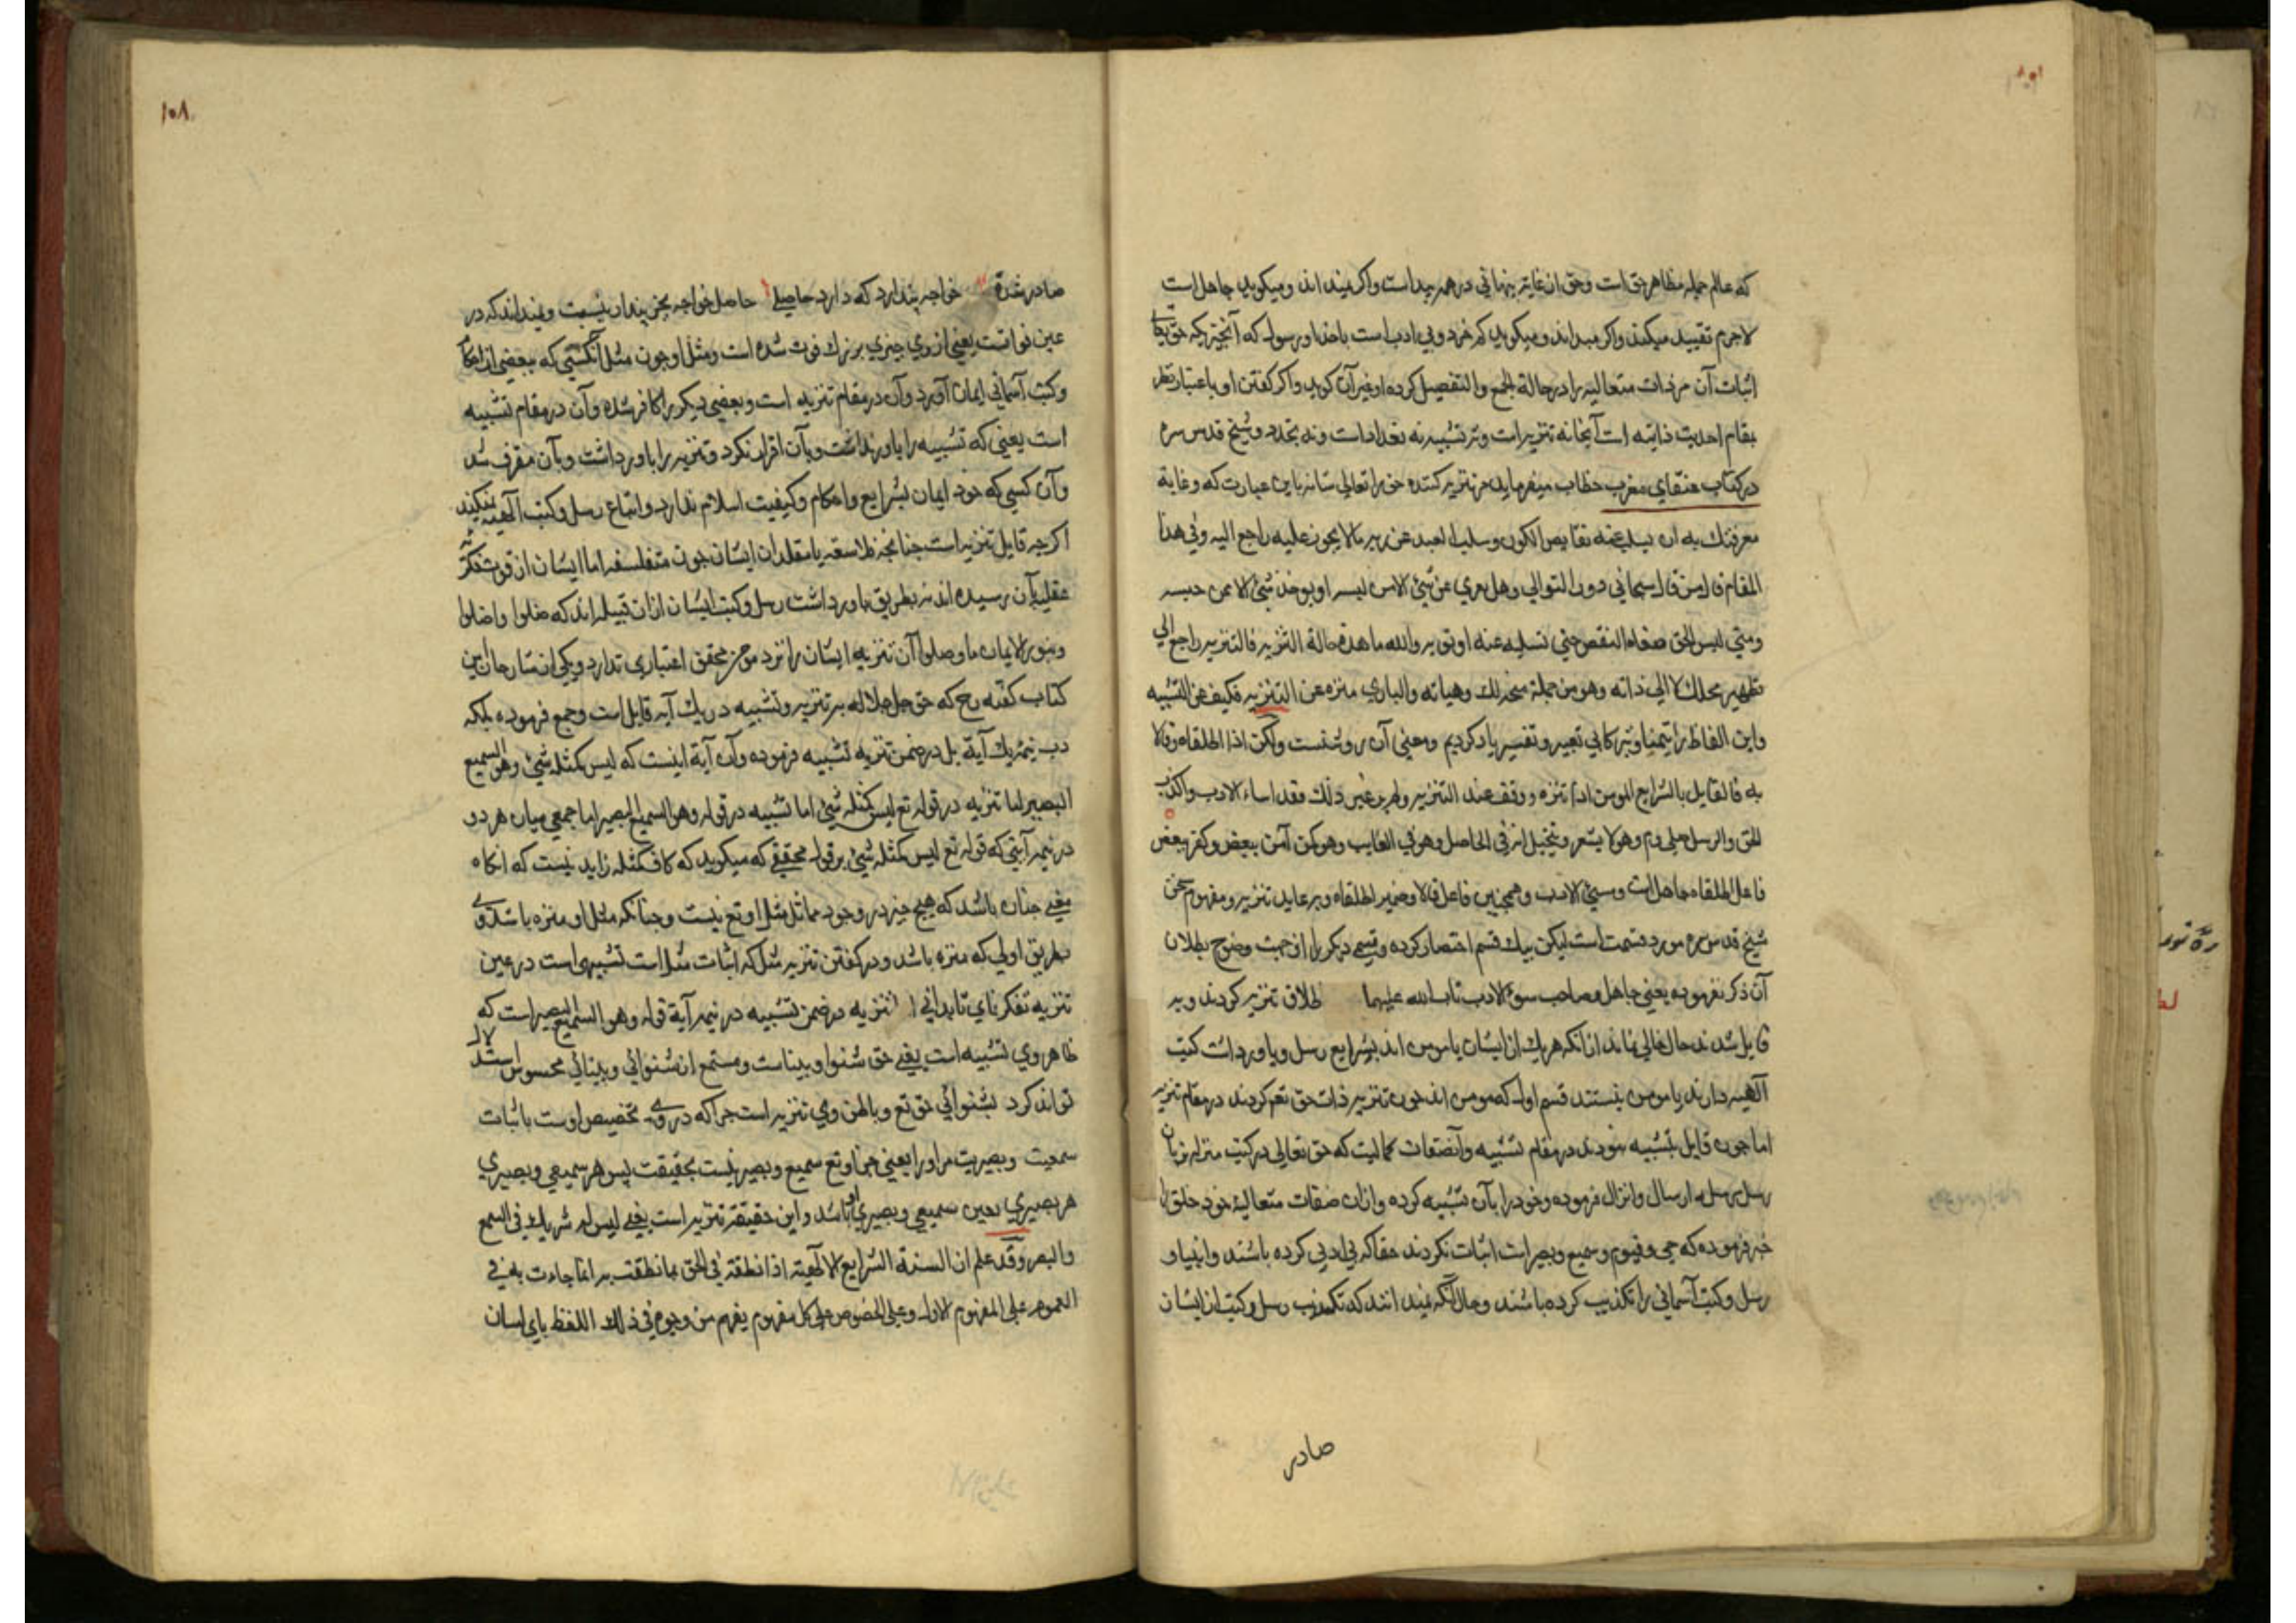 که عالم جمله مظاهر حق است وحق از غایة پنهانی در همه پیداست واکر نمیداند ومیکوید جاهل است
لاجرم تقیید میکند واکر میداند ومیکوید کم خرد وبی ادب است باخدا ورسول که آنچیزیکه حق تعالی
اثبات آن مر ذات متعالیه را در حالة الجمع والتفصیل کرده او غیر آن کوید واکر کفتن او باعتبار نظر
بمقام احدیت ذاتیه است آنجا نه تنزیه است ونه تشبیه نه تعداد است ونه تجدد وشیخ قدس سره
در کتاب عنقای مغرب خطاب میفرماید مر تنزیه کننده حق را تعالی شانه باین عبارت که وغایة
معرفتك به ان تسلب عنه نقایص الکون وسلب العبد عن ربه ما لا یجوز علیه راجع الیه وفی هذا
المقام قال من قال سبحانی دون التوالی وهل یعری عن شیئ الا من لبسه او یوخذ شیئ الا عمن حبسه
ومتی لبس الحق صفات النقص حتی تسلبه عنه او تعریه والله ما هذه حالة التنزیه فالتنزیه راجع الی
تطهیر محلك لا الی ذاته وهو من جملة منحه لك وهباته والباری منزه عن التنزیه فکیف عن التشبیه
واین الفاظ را تیمنا وتبرکا بی تعبیر وتفسیر یاد کردیم ومعنی آن روشنست ولکن اذا اطلقاه وقالا
به فالقایل بالشرایع المومن اذا تنزه ووقف عند التنزیه ولم یر غیر ذلك فقد اساء الادب واکذب
الحق والرسل صلی وم وهو لا یشعر ویتخیل انه فی الحاصل وهو فی الفایت وهو کمن آمن ببعض وکفر ببعض
فاعل اطلقاه جاهل است وسیئ الادب وهمچنین فاعل قالا وضمیر اطلقاه وبه عاید تنزیه ومفهوم سخن
شیخ قدس سره مورد قسمت است لیکن بیك قسم اختصار کرده وقسمی دیکر را از جهت وضوح بطلان
آن ذکر نفرموده یعنی جاهل وصاحب سوء الادب تاب الله علیهما اطلاق تنزیه کردند وبه
قایل شدند حال خالی نماند از انکه هریك از ایشان یا مومن اند بشرایع رسل وباور داشت کتب
آلهیه دارند یا مومن نیستند قسم اول که مومن اند چون تنزیه ذات حق تع کردند در مقام تنزیه
اما چون قایل بتشبیه نبودند در مقام تشبیه وآنصفات کمالیت که حق تعالی در کتب منزله بزبان
رسل مرسله ارسال وانزال فرموده وخود را بآن تشبیه کرده وازان صفات متعالیة خود خلق را
خبر فرموده که حی وقیوم وسمیع وبصیر است اثبات نکردند حقا که بی ادبی کرده باشند وانبیا و
رسل وکتب آسمانی را تکذیب کرده باشند وحال آنکه نمیدانند که تکذیب رسل وکتب از ایشان
صادر
۱۰۸
صادر شده خواجه پندارد که دارد حاصلی حاصل خواجه بجز پندار نیست ونمیداند که در
عین فواتست یعنی از وی چیزی بزرك فوت شده است ومثل او چون مثل آنکسی که ببعضی از احکام
وکتب آسمانی ایمان آورد وآن در مقام تنزیه است وبعضی دیکر را کافر شده وآن در مقام تشبیه
است یعنی که تشبیه را باور نداشت وبآن اقرار نکرد وتنزیه را باور داشت وبآن مقر شد
وآن کسی که خود ایمان بشرایع واحکام وکیفیت اسلام ندارد واتباع رسل وکتب آلهیه نمیکند
اکرچه قایل تنزیه است چنانچه فلاسفه یا مقلدان ایشان چون متفلسفه اما ایشان از قوت فکریه
عقلیه بآن رسیده اند نه بطریق باور داشت رسل وکتب ایشان ازان قبیله اند که ضلوا واضلوا
وبنور الایمان ما وصلوا آن تنزیه ایشان را نزد موحد محقق اعتباری ندارد ویکی از شارحان این
کتاب کفته رح که حق جل جلاله بر تنزیه وتشبیه در یك آیه قایل است وجمع فرموده بلکه
در نیمه یك آیة بل در ضمن تنزیه تشبیه فرموده وآن آیة اینست که لیس کمثله شیئ وهو السمیع
البصیر اما تنزیه در قوله تع لیس کمثله شیئ اما تشبیه در قوله وهو السمیع البصیر اما جمعی میان هر دو
در نیمه آیتی که قوله تع لیس کمثله شیئ بر قول محققی که میکوید که کاف کمثله زاید نیست که انکاه
معنی چنان باشد که هیچ چیز در وجود مماثل مثل او تع نیست وچنانکه مثل او منزه باشد وی
بطریق اولی که منزه باشد ودر کفتن تنزیه مثل که اثبات مثل است تشبیهی است در عین
تنزیه تفکر نمای تا بدانی اما تنزیه در ضمن تشبیه در نیمه آیة قوله وهو السمیع البصیر است که
ظاهر وی تشبیه است یعنی حق شنوا وبیناست ومستمع از شنوائی وبینائی محسوس استدلال
تواند کرد بشنوائی حق تع وباطن وی تنزیه است چراکه در وی تخصیص اوست باثبات
سمعیت وبصیریت مر او را یعنی جز او تع سمیع وبصیر نیست بحقیقت پس هر سمیعی وبصیری
هر بصیری بعین سمیعی وبصیری او باشد واین حقیقة تنزیه است یعنی لیس له شریك فی السمع
والبصر وقد علم ان السنة الشرایع الالهیة اذا نطقت فی الحق بما نطقت به انما جاءت به فی
العموم علی المفهوم الاول وعلی الخصوص علی کل مفهوم یفهم من وجوه ذلك اللفظ بای لسان